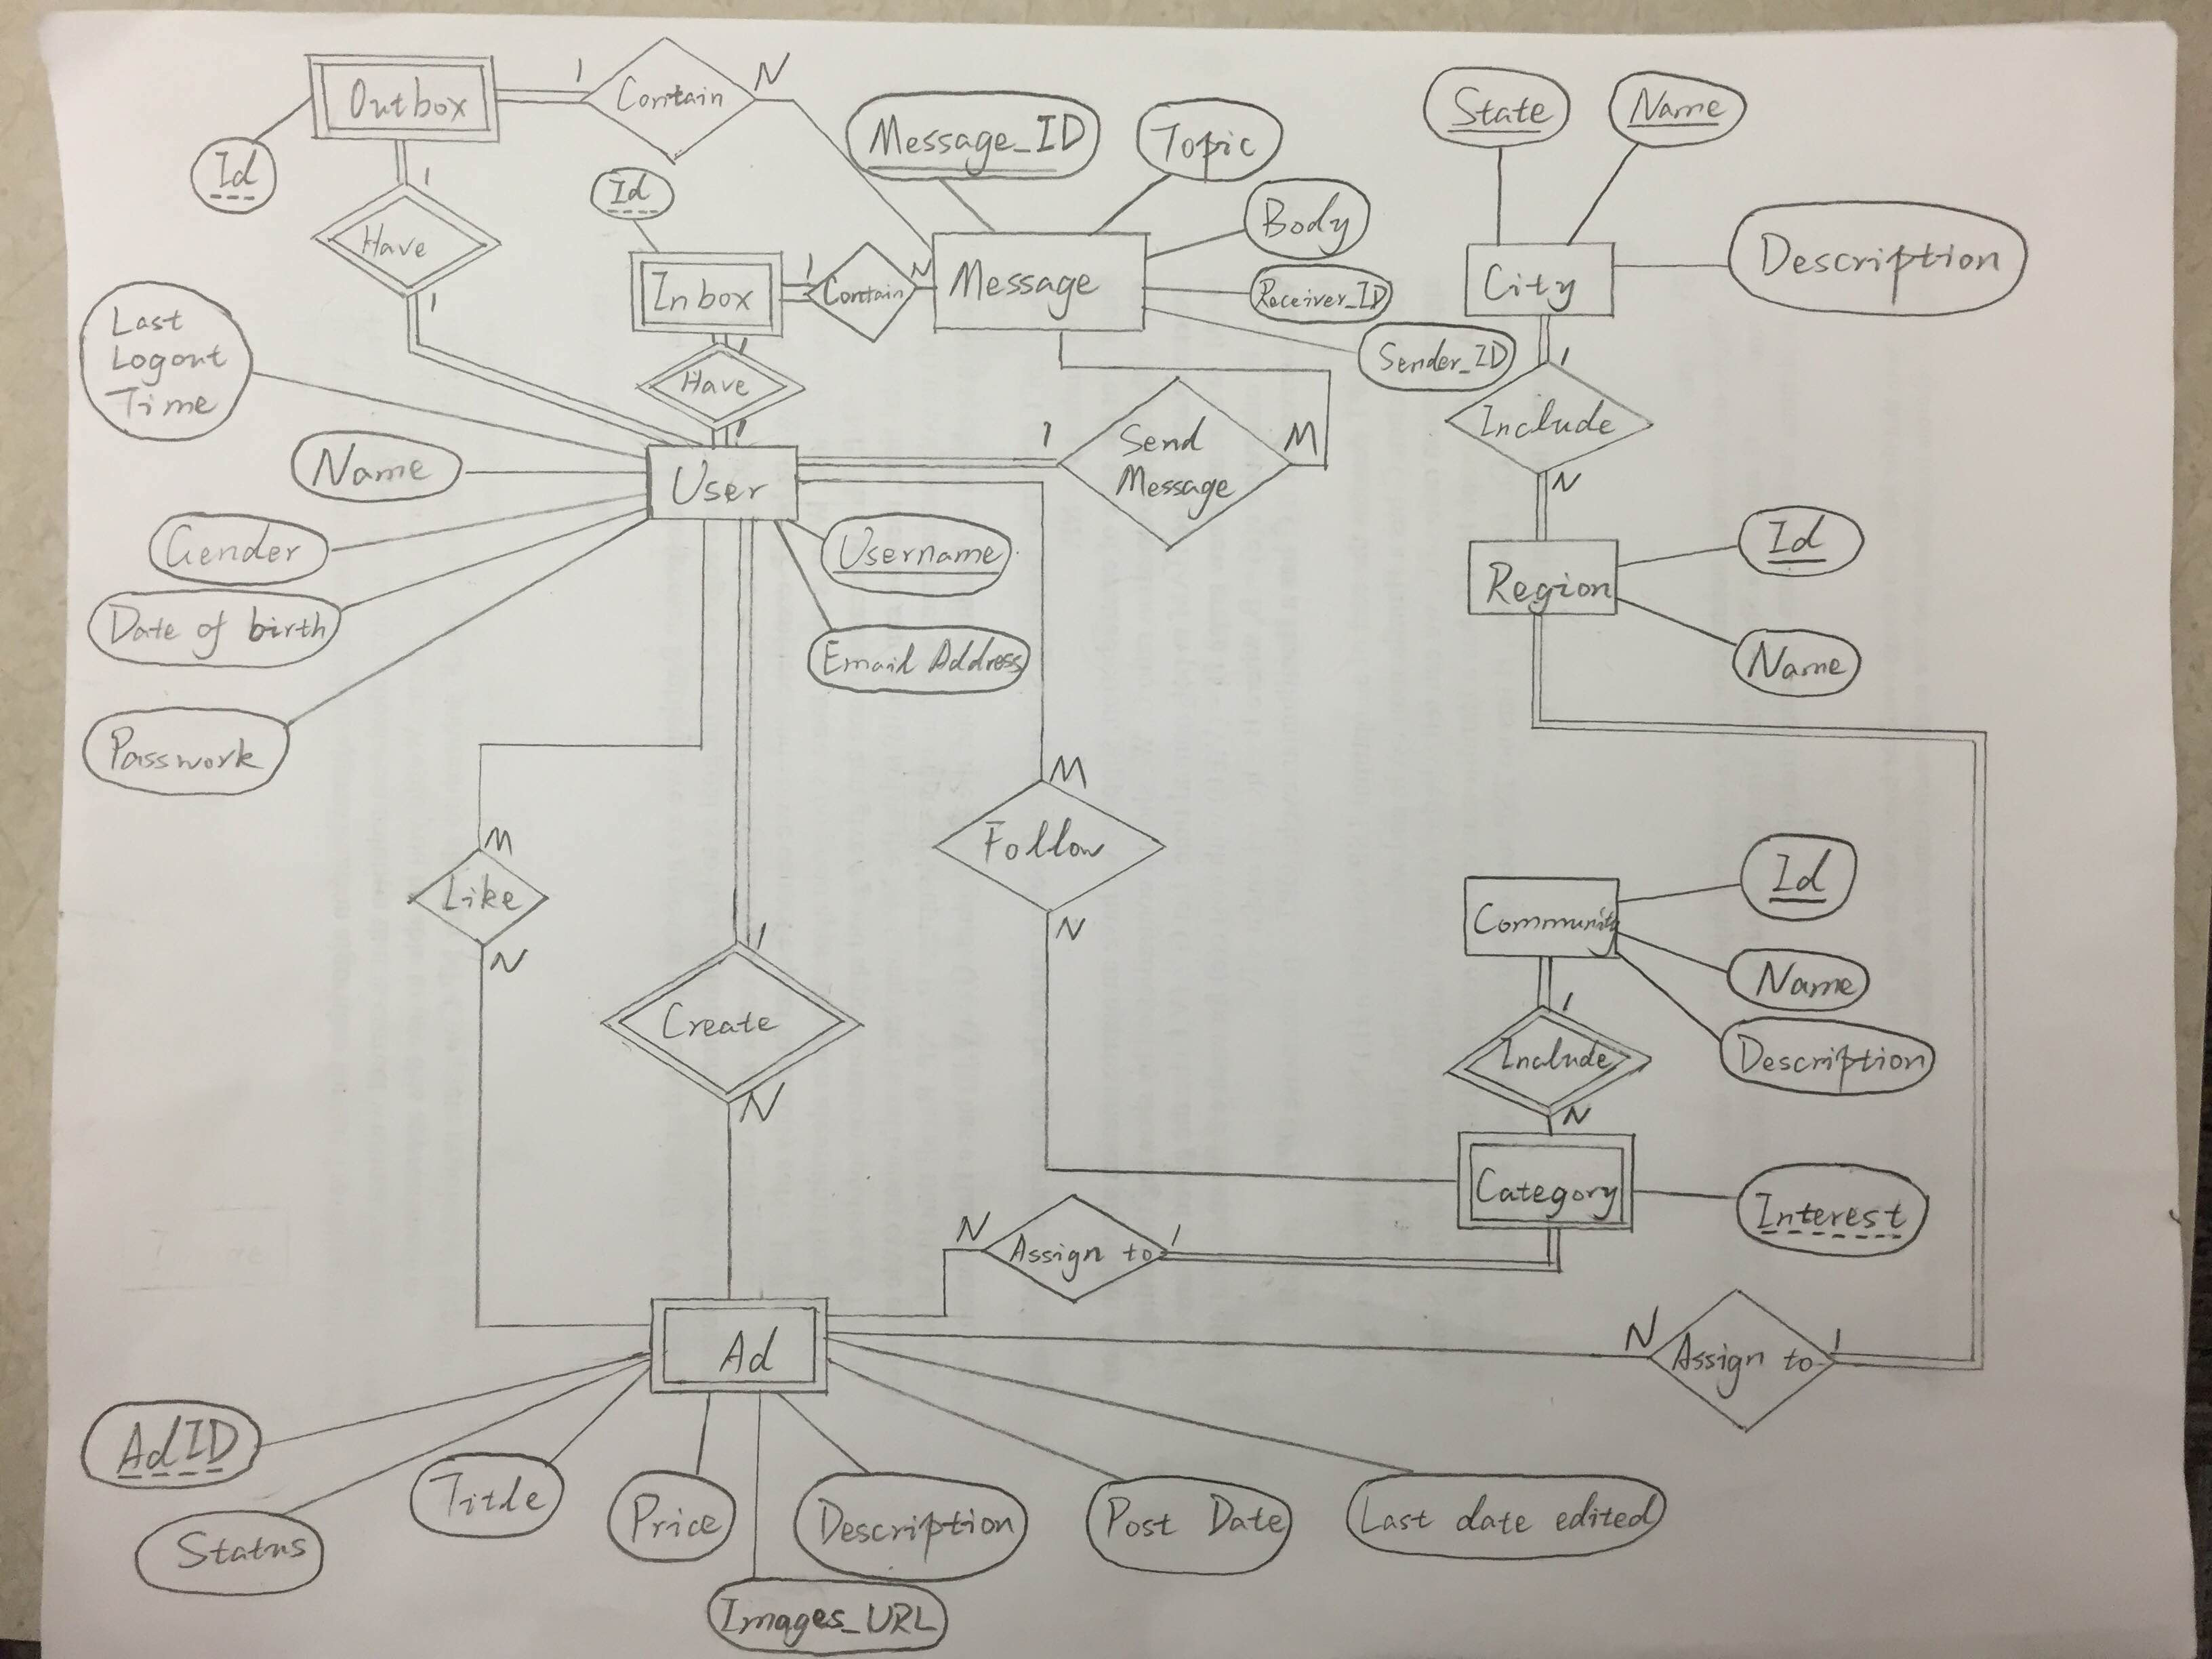 Outbox
1
Contain
N
Id
1
Have
1
Id
Inbox
1
Contain
N
1
Have
1
Message
Message_ID
Topic
Body
Receiver_ID
Sender_ID
State
Name
Description
City
1
Include
N
Region
Id
Name
Last
Logout
Time
Name
Gender
Date of birth
Passwork
User
Username
Email Address
1
Send
Message
M
M
Like
N
1
Create
N
M
Follow
N
Community
Id
Name
Description
1
Include
N
Category
Interest
N
Assign to
1
N
Assign to
1
Ad
AdID
Status
Title
Price
Images_URL
Description
Post Date
Last date edited